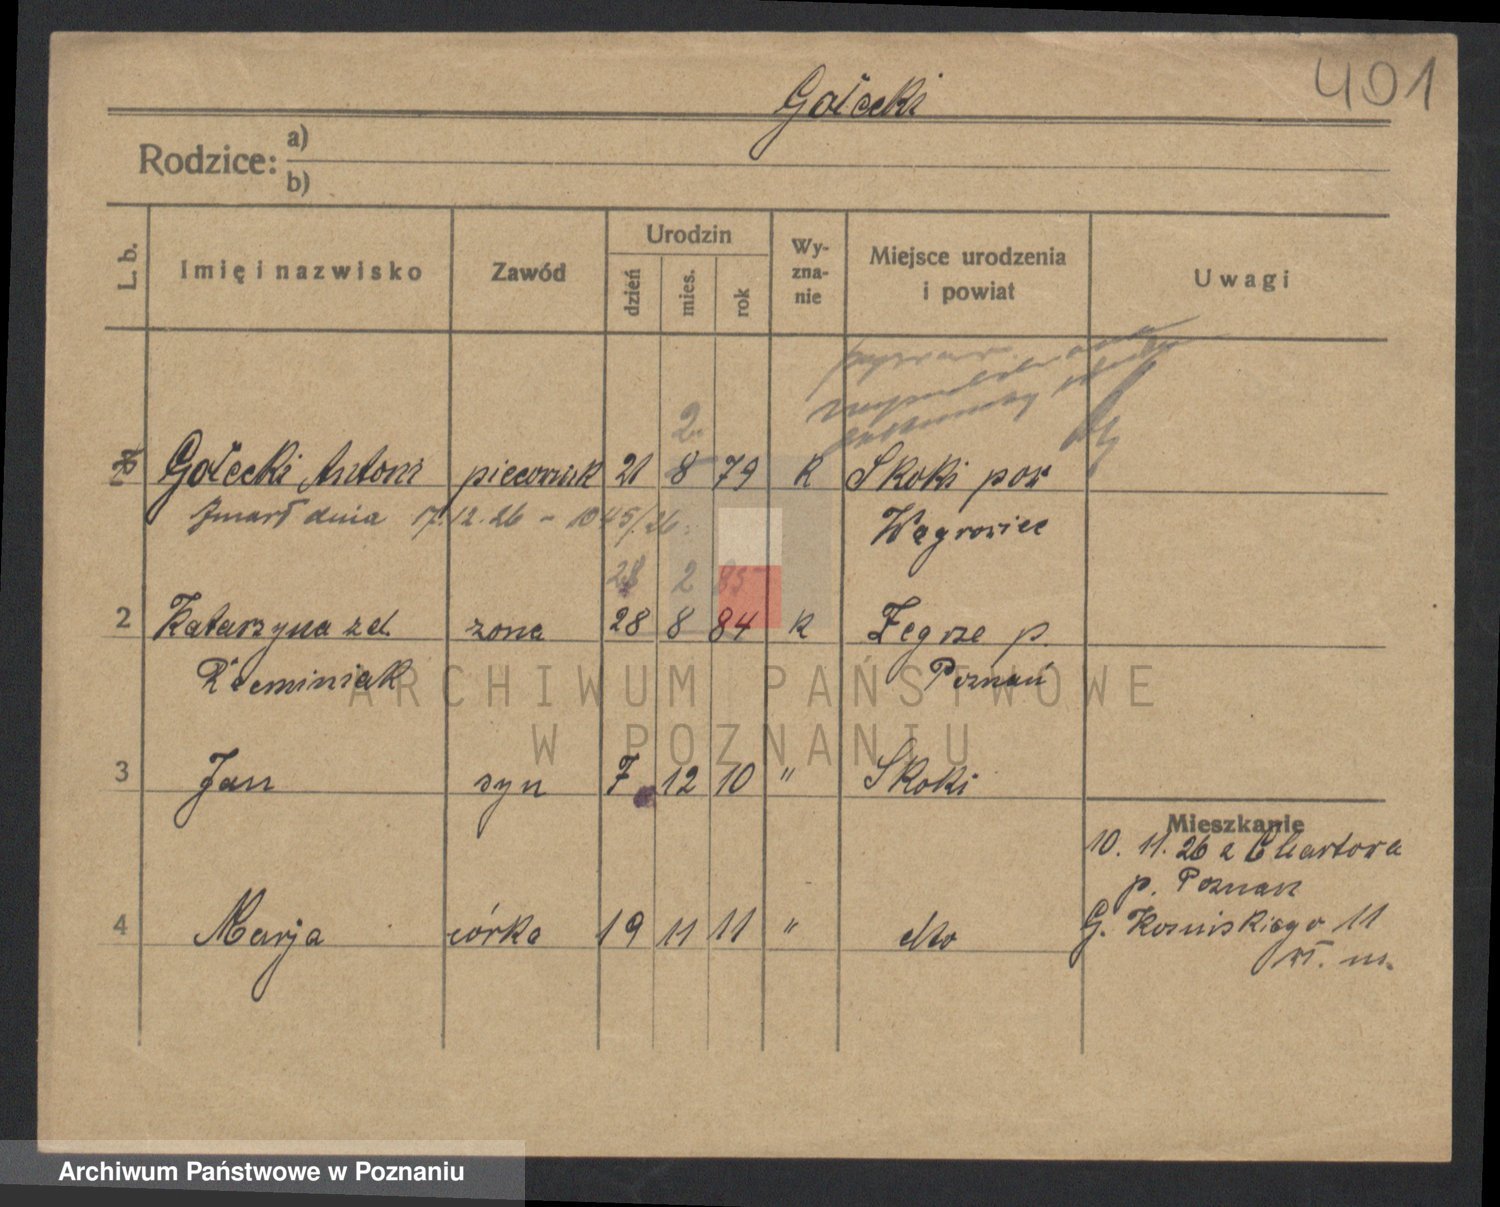 401
Gołecki
Rodzice: a)
b)
L. b. Imię i nazwisko Zawód Urodzin dzień mies. rok Wyznanie Miejsce urodzenia i powiat Uwagi
2.
Gołecki Antoni piecownik 21 8 79 k Skoki pow
Zmarł dnia 17.12.26 - 1045/26. Wągrowiec
28 2 85
2 Katarzyna z d. żona 28 8 84 k Żegrze p.
Poznań
ARCHIWUM PAŃSTWOWE
W POZNANIU
3 Jan syn 7 12 10 " Skoki
Mieszkanie
10. 11. 26 z Chartowa
p. Poznan
4 Marja córka 19 11 11 " dto G. 11
wł. m.
Archiwum Państwowe w Poznaniu